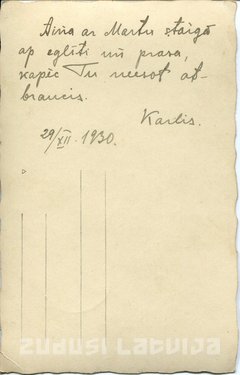 Aina ar Martu staigā
ap eglīti un prasa,
kapēc Tu neesot at-
braucis.
Karlis.
29/XII. 1930.
ZUDUSI LATVIJA